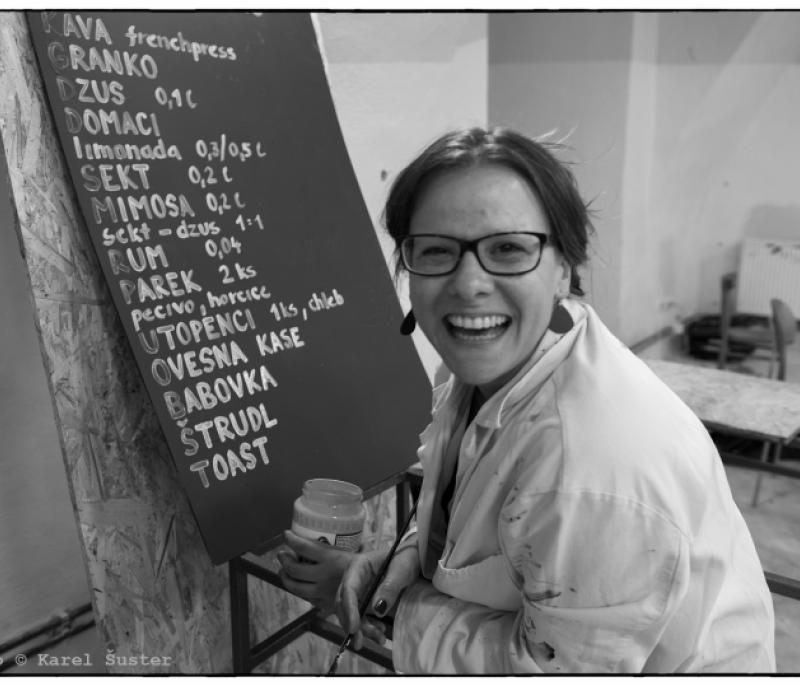 KAVA frenchpress
GRANKO
DZUS 0,1 l
DOMACI
limonada 0,3/0,5 l
SEKT 0,2 l
MIMOSA 0,2 l
sekt - dzus 1:1
RUM 0,04
PAREK 2 ks
pecivo, horcice
UTOPENCI 1ks, chleb
OVESNA KASE
BABOVKA
ŠTRUDL
TOAST
© Karel Šuster